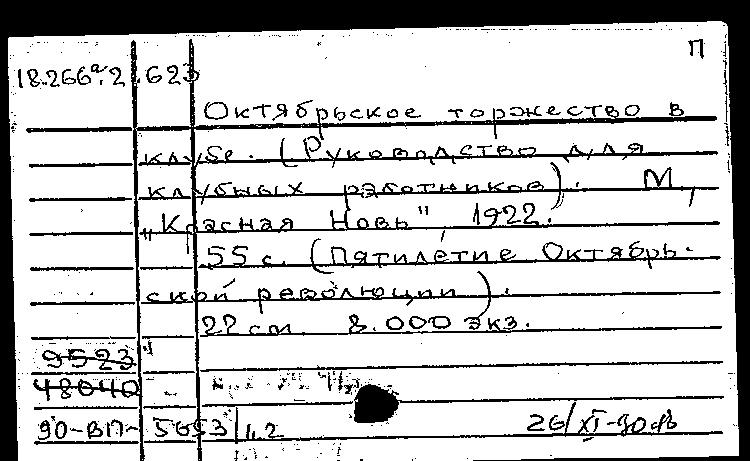 П
18.266а.2 623
Октябрьское торжество в
клубе. (Руководство для
клубных работников). М,
"Красная Новь", 1922.
55 с. (Пятилетие Октябрь-
ской революции).
22 см. 8.000 экз.
9523
48040
90-ВП- 5653/1.2 26/XI-90